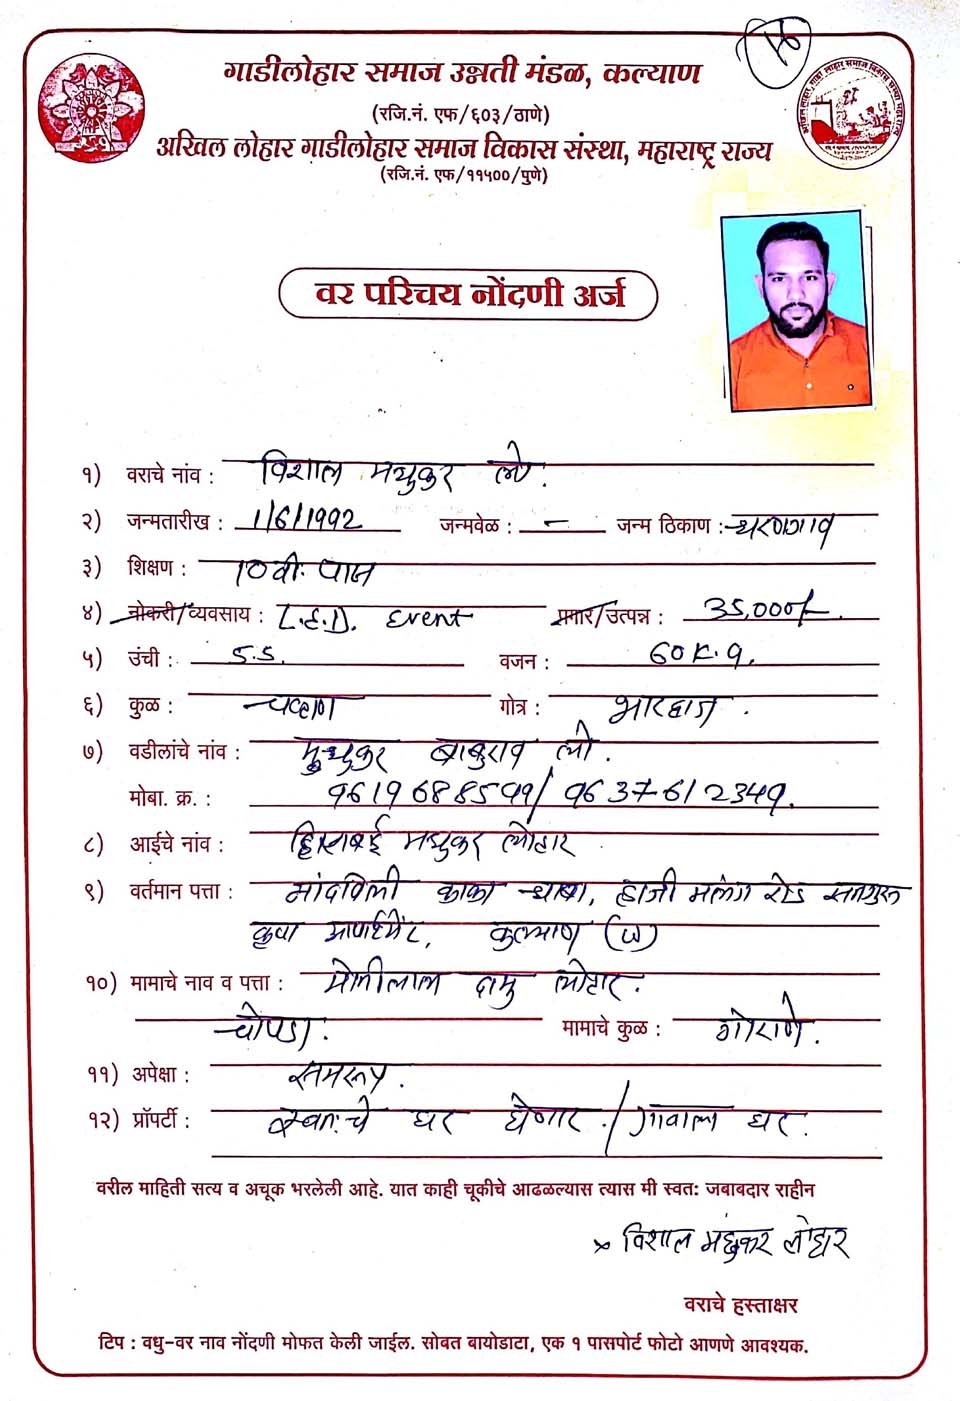 गाडीलोहार समाज उन्नती मंडळ, कल्याण
(रजि.नं. एफ/६०३/ठाणे)
अखिल लोहार गाडीलोहार समाज विकास संस्था, महाराष्ट्र राज्य
(रजि.नं. एफ/११५००/पुणे)
वर परिचय नोंदणी अर्ज
१) वराचे नांव : विशाल मधुकर लो.
२) जन्मतारीख : 1/6/1992 जन्मवेळ : – जन्म ठिकाण : धरणगाव
३) शिक्षण : 10 वी. पास
४) नोकरी/व्यवसाय : L.E.D. Event पगार/उत्पन्न : 35,000/-
५) उंची : 5.5. वजन : 60 K.g.
६) कुळ : चव्हाण गोत्र : भारद्वाज.
७) वडीलांचे नांव : मधुकर बाबुराव लो.
मोबा. क्र. : 9619688599/ 9637612349.
८) आईचे नांव : मधुकर लोहार
९) वर्तमान पत्ता : काका ढाबा, हाजी मलंग रोड सतगुरु
कृपा अपार्टमेंट, कल्याण (W)
१०) मामाचे नाव व पत्ता : मोतीलाल दामु लोहार.
चोपडा. मामाचे कुळ : गोराणे.
११) अपेक्षा : समरूप.
१२) प्रॉपर्टी : स्वतःचे घर घेणार. / गावाला घर.
वरील माहिती सत्य व अचूक भरलेली आहे. यात काही चूकीचे आढळल्यास त्यास मी स्वत: जबाबदार राहीन
× विशाल मधुकर लोहार
वराचे हस्ताक्षर
टिप : वधु-वर नाव नोंदणी मोफत केली जाईल. सोबत बायोडाटा, एक १ पासपोर्ट फोटो आणणे आवश्यक.